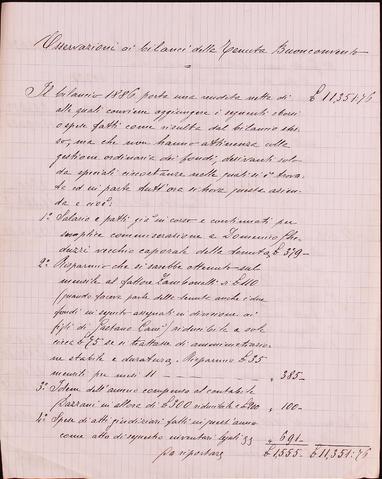 Osservazioni ai bilanci della Tenuta Buonconvento
Il bilancio 1886 porta una rendita netta di £ 11,351.76
alle quali conviene aggiungere i seguenti sborsi
o spese fatti come risulta dal bilancio stes-
so, ma che non hanno attinenza colla
gestione ordinaria dei fondi, derivanti solo
da speciali circostanze nelle quali si è trova-
ta ed in parte tutt'ora si trova questa azien-
da e cioè:
1º Salario e patti già in corso e continuati per
semplice commiserazione a Domenico Ghe-
duzzi vecchio caporale della tenuta £ 379 —
2º Risparmio che si sarebbe ottenuto sul
mensile al fattore Zambonelli di £ 110
(quando faceva parte della tenuta anche i due
fondi in seguito assegnati in divisione ai
figli di Gaetano) riducibile a sole
circa £ 75 se si trattasse di amministrazio-
ne stabile e duratura. Risparmio £ 35
mensili per mesi 11 — „ 385 —
3º Idem dell'annuo compenso al contabile
Bazzani in allora di £ 300 riducibile a £ 200 „ 100 —
4º Spese di atti giudiziari fatti in quest'anno
come atto di sequestro inventari legali „ 691 —
Da riportarsi £ 1555 — £ 11,351:76